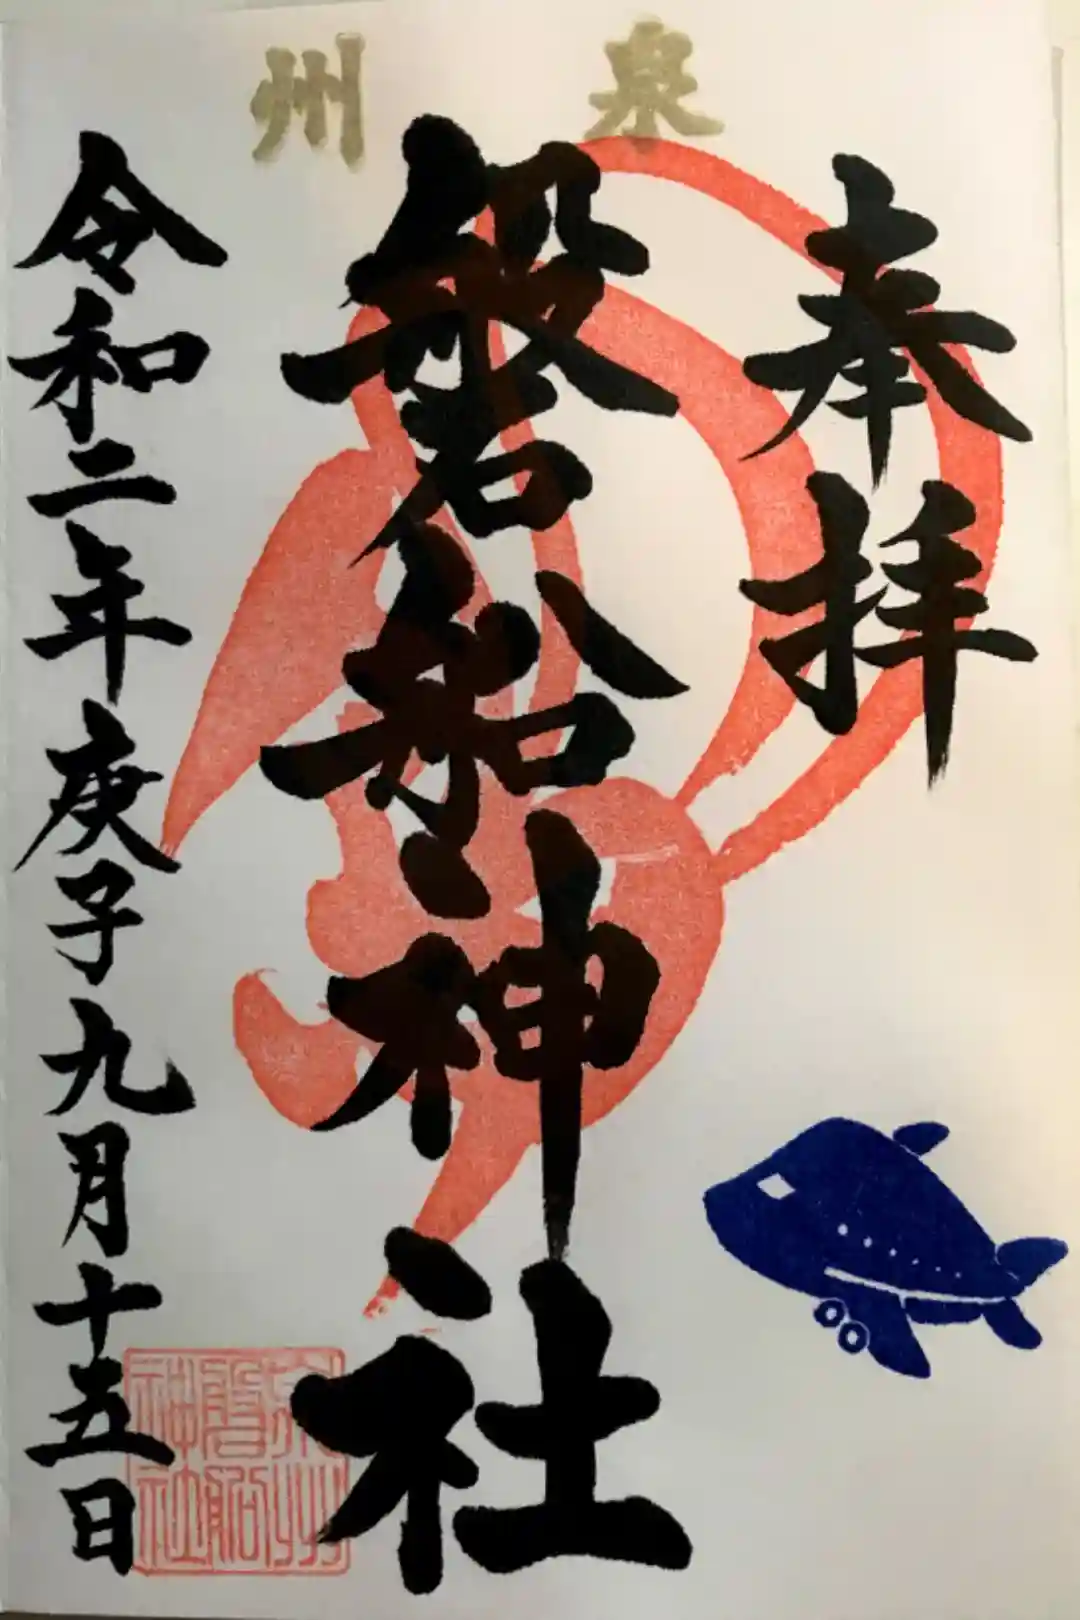 泉州
奉拝
磐船神社
令和二年庚子九月十五日
泉州
磐船
神社